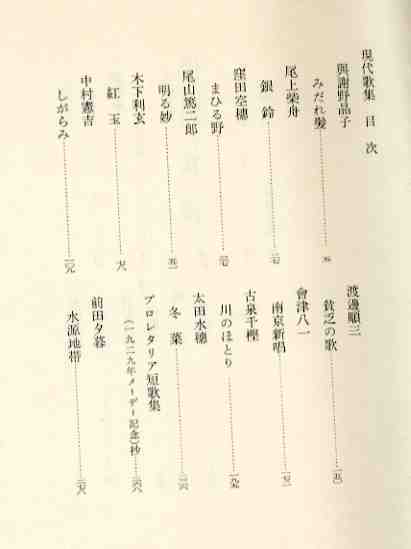 現代歌集 目次
與謝野晶子
みだれ髮
尾上柴舟
銀鈴
窪田空穗
まひる野
尾山篤二郎
明る妙
木下利玄
紅玉
中村憲吉
しがらみ
渡邊順三
貧乏の歌
會津八一
南京新唱
古泉千樫
川のほとり
太田水穗
冬菜
プロレタリア短歌集
(一九二九年メーデー記念)抄
前田夕暮
水源地帶